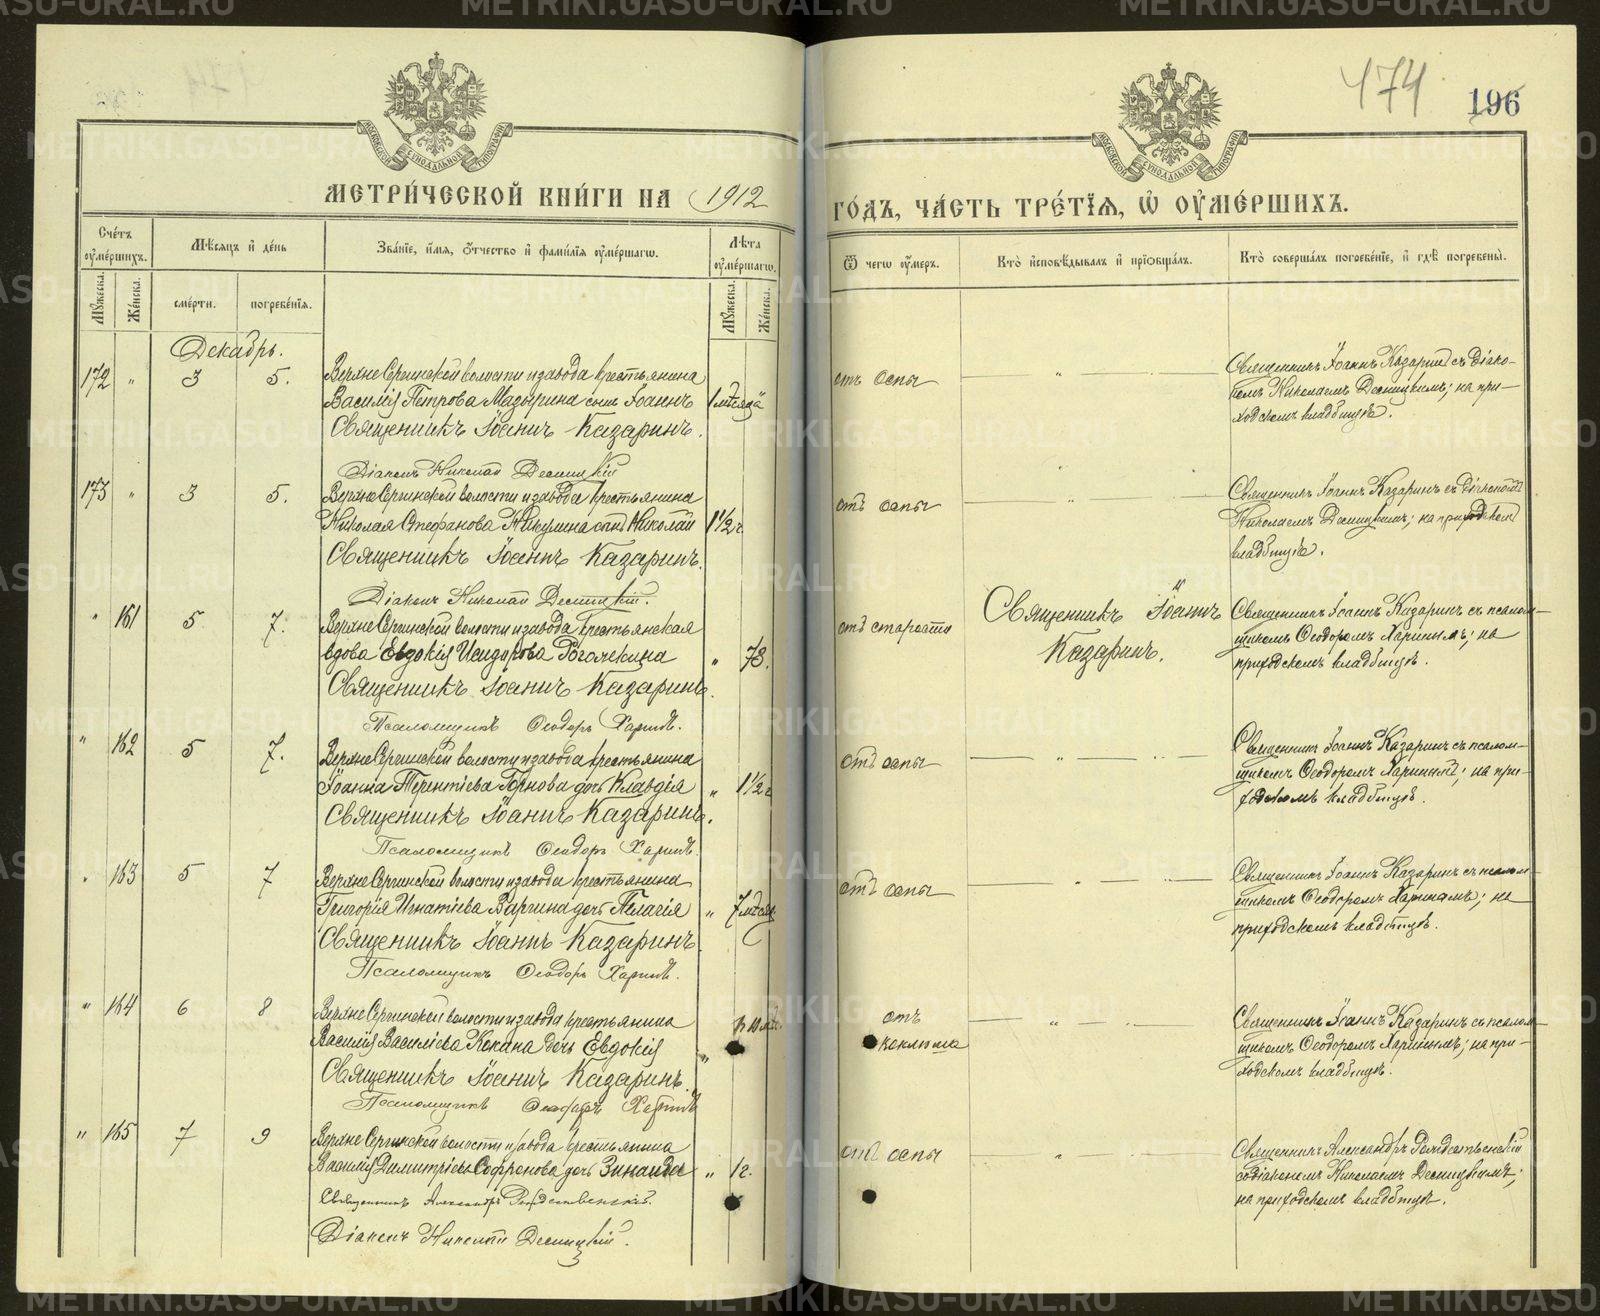 174
196
МОСКОВСКОЙ СѴНОДАЛЬНОЙ ТИПОГРАФІИ
МОСКОВСКОЙ СѴНОДАЛЬНОЙ ТИПОГРАФІИ
МЕТРИ́ЧЕСКОЙ КНИ́ГИ НА 1912
ГО́ДЪ, ЧА́СТЬ ТРЕ́ТІѦ, Ѡ҆ ОУ҆МЕ́РШИХЪ.
Сче́тъ оу҆ме́ршихъ.
Мѣ́сѧцъ и҆ де́нь
Зва́нїе, и҆́мѧ, ѻ҆́тчество и҆ фами́лїѧ оу҆ме́ршагѡ.
Лѣ́та оу҆ме́ршагѡ.
Ѿ чегѡ̀ оу҆́меръ.
Кто̀ и҆сповѣ́дывалъ и҆ прїѡбща́лъ.
Кто̀ соверша́лъ погребе́нїе, и҆ гдѣ̀ погребены̀.
Мꙋ́жеска.
Же́нска.
сме́рти.
погребе́нїѧ.
Мꙋ́жеска.
Же́нска.
Декабрь.
172 „ 3 5. Верхне Сергинской волости и завода крестьянина
Василія Петрова Мазурина сынъ Іоаннъ 1 мѣсяца
Священникъ Іоаннъ Казаринъ.
Діаконъ Николай Десницкій
отъ оспы — „ —
Священникъ Іоаннъ Казаринъ съ діако-
номъ Николаемъ Десницкимъ; на при-
ходскомъ кладбищѣ.
173 „ 3 5. Верхне Сергинской волости и завода крестьянина
Николая Стефанова Никулина сынъ Николай 1 1/2 г.
Священникъ Іоаннъ Казаринъ.
Діаконъ Николай Десницкій.
отъ оспы — „ —
Священникъ Іоаннъ Казаринъ съ діакономъ
Николаемъ Десницкимъ; на приходскомъ
кладбищѣ.
„ 161 5 7. Верхне Сергинской волости и завода крестьянская
вдова Евдокія Исидорова „ 78.
Священникъ Іоаннъ Казаринъ.
Псаломщикъ Ѳеодоръ Харинъ.
отъ старости
Священникъ Іоаннъ
Казаринъ.
Священникъ Іоаннъ Казаринъ съ псалом-
щикомъ Ѳеодоромъ Харинымъ; на
приходскомъ кладбищѣ.
„ 162 5 7. Верхне Сергинской волости и завода крестьянина
Іоанна Терентіева Горнова дочь Клавдія „ 1 1/2 г.
Священникъ Іоаннъ Казаринъ.
Псаломщикъ Ѳеодоръ Харинъ.
отъ оспы — „ —
Священникъ Іоаннъ Казаринъ съ псалом-
щикомъ Ѳеодоромъ Харинымъ; на при-
ходскомъ кладбищѣ.
„ 163 5 7 Верхне Сергинской волости и завода крестьянина
Григорія Игнатіева Варгина дочь Пелагія „ 7 мѣсяц.
Священникъ Іоаннъ Казаринъ.
Псаломщикъ Ѳеодоръ Харинъ.
отъ оспы — „ —
Священникъ Іоаннъ Казаринъ съ псалом-
щикомъ Ѳеодоромъ Харинымъ; на
приходскомъ кладбищѣ.
„ 164 6 8 Верхне Сергинской волости и завода крестьянина
Василія Василіева дочь Евдокія „
Священникъ Іоаннъ Казаринъ.
Псаломщикъ Ѳеодоръ Харинъ
отъ
коклюша
— „ —
Священникъ Іоаннъ Казаринъ съ псалом-
щикомъ Ѳеодоромъ Харинымъ; на при-
ходскомъ кладбищѣ.
„ 165 7 9 Верхне Сергинской волости и завода крестьянина
Василія Димитріева Софронова дочь Зинаида „ 1 г.
Священникъ Александръ Рождественскій.
Діаконъ Николай Десницкій.
отъ оспы — „ —
Священникъ Александръ Рождественскій
съ діакономъ Николаемъ Десницкимъ;
на приходскомъ кладбищѣ.
METRIKI.GASO-URAL.RU